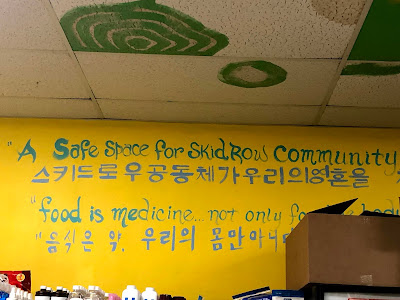 "A Safe Space for Skid Row Community
스키드로우공동체가우리의영혼을
"food is medicine... not only for the body
"음식은 약. 우리의 몸만아니